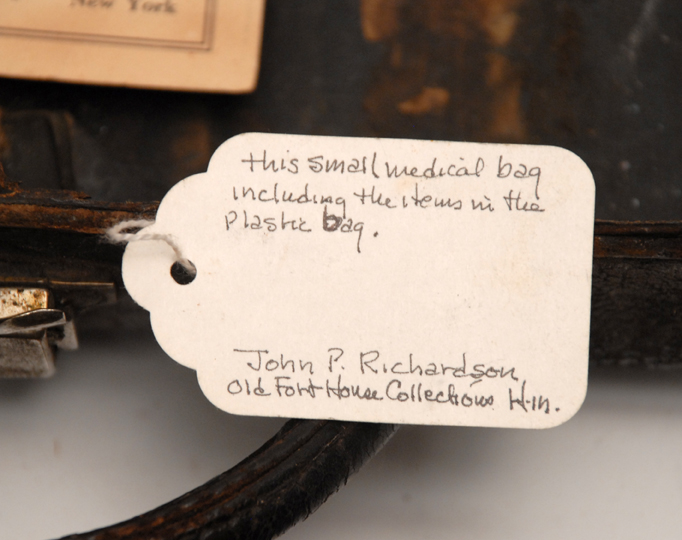 New York
this small medical bag
including the items in the
plastic bag.
John P. Richardson
Old Fort House Collections